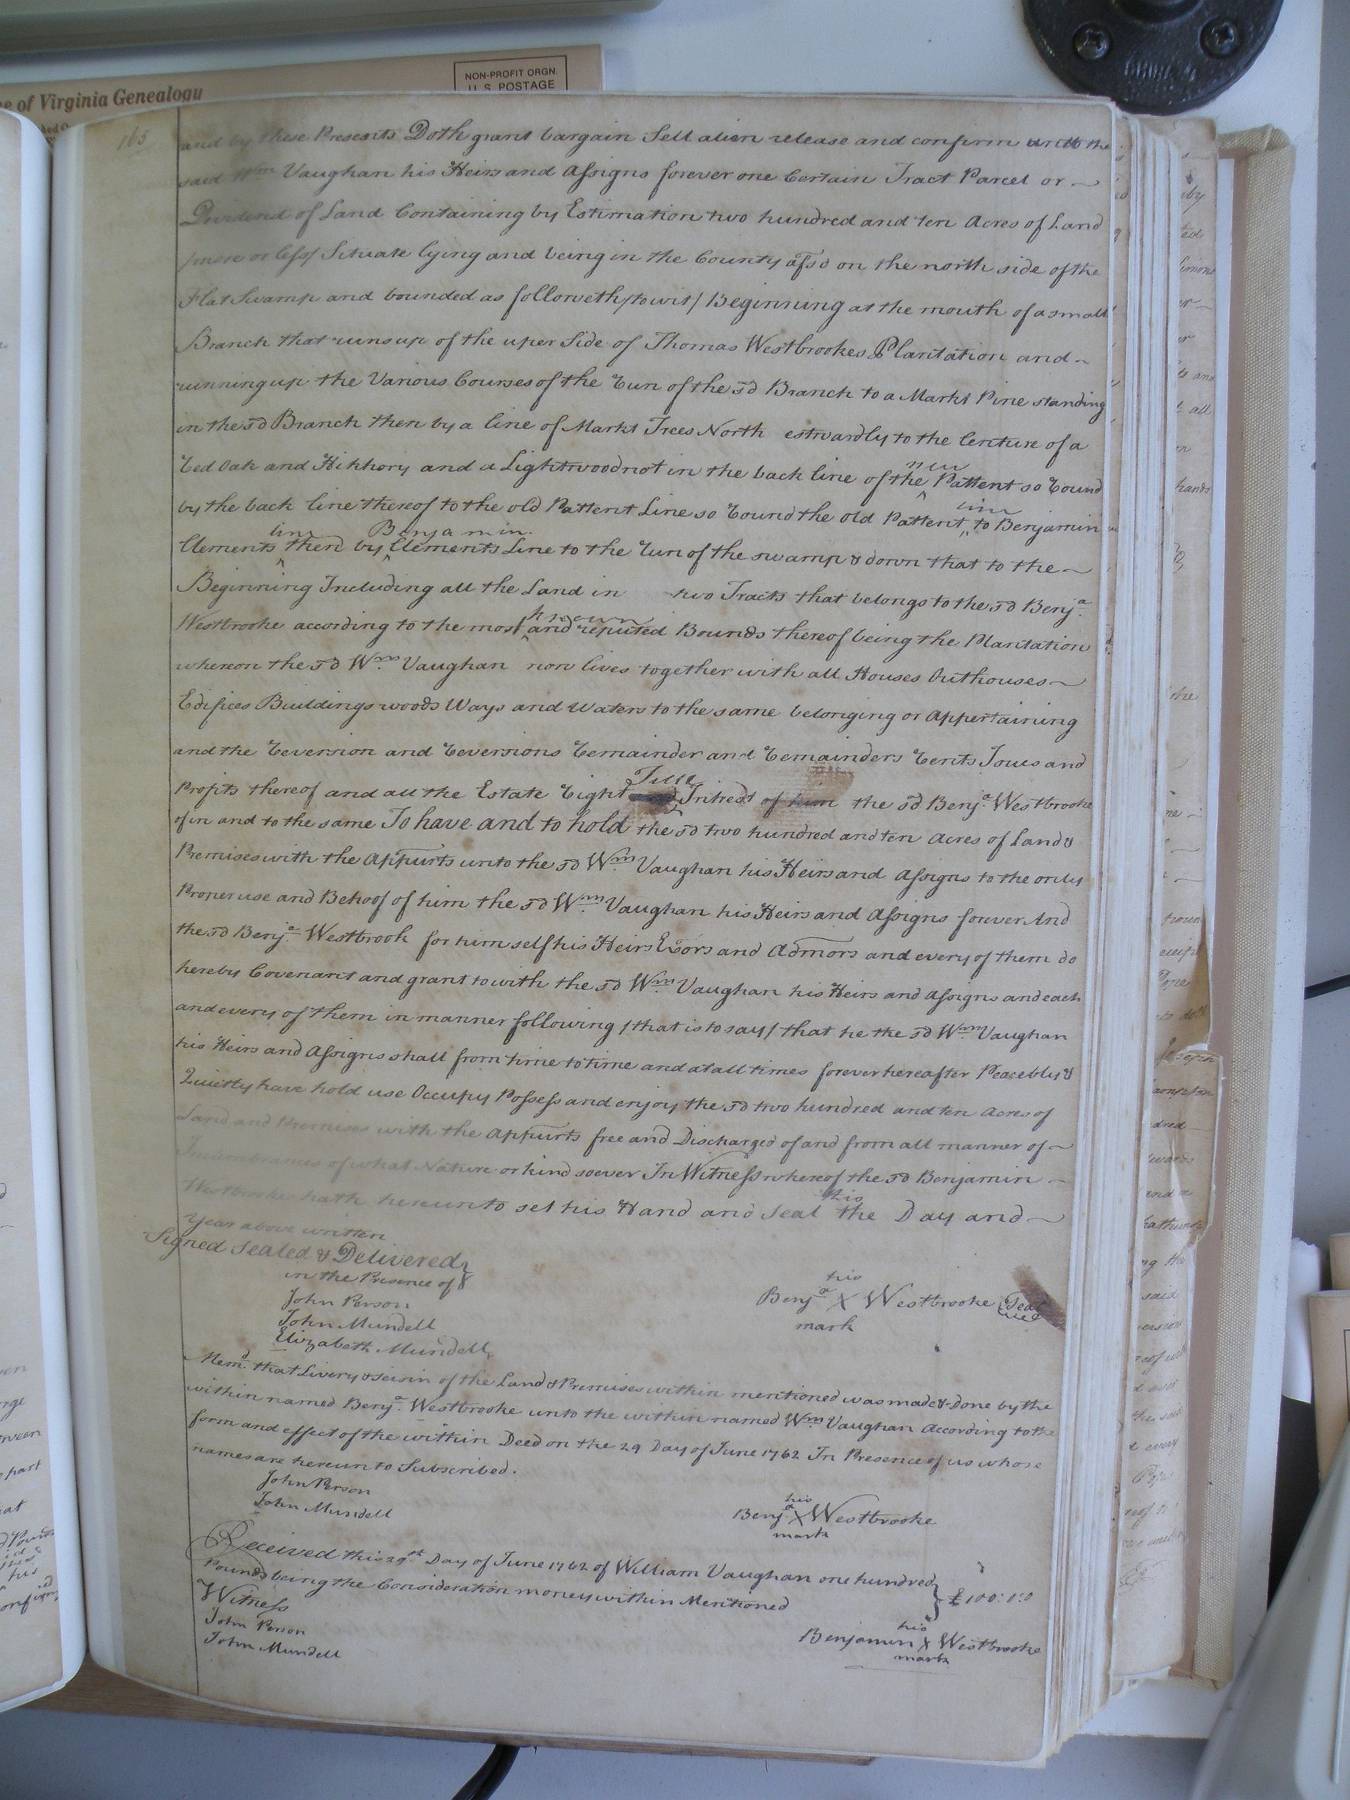 NON-PROFIT ORGN.
U.S. POSTAGE
of Virginia Genealogy
165
and by these Presents Doth grant bargain Sell alien release and confirm unto the
said Wm Vaughan his Heirs and Assigns forever one Certain Tract Parcel or
Dividend of Land Containing by Estimation two hundred and ten Acres of Land
/more or less/ Situate lying and being in the County afsd on the north side of the
Flat Swamp and bounded as followeth /to wit/ Beginning at the mouth of a small
Branch that runs up of the uper Side of Thomas Westbrookes Plantation and
running up the Various Courses of the run of the sd Branch to a Markt Pine standing
in the sd Branch then by a line of Markt Trees North estwardly to the Centure of a
red Oak and Hikkory and a Lightwood not in the back line of the new Pattent so round
by the back line thereof to the old Pattent Line so round the old Pattent line to Benjamin
Clements line then by Benjamin Clements Line to the run of the swamp & down that to the
Beginning Including all the Land in two Tracts that belongs to the sd Benja
Westbrooke according to the most known and reputed Bounds thereof being the Plantation
whereon the sd Wm Vaughan now lives together with all Houses Outhouses
Edifices Buildings woods Ways and Waters to the same belonging or Appertaining
and the reversion and reversions remainder and remainders rents Isues and
Profits thereof and all the Estate right Title Intrest of him the sd Benja Westbrooke
of in and to the same To have and to hold the sd two hundred and ten Acres of Land &
Premises with the Appurts unto the sd Wm Vaughan his Heirs and Assigns to the only
Proper use and Behoof of him the sd Wm Vaughan his Heirs and Assigns forever And
the sd Benja Westbrook for him self his Heirs Exors and Admors and every of them do
hereby Covenant and grant to with the sd Wm Vaughan his Heirs and Assigns and each
and every of them in manner following /that is to say/ that he the sd Wm Vaughan
his Heirs and Assigns shall from time to time and at all times forever hereafter Peacebly &
Quietly have hold use Occupy Possess and enjoy the sd two hundred and ten Acres of
Land and Premises with the Appurts free and Discharged of and from all manner of
Incumbrances of what Nature or kind soever In Witness whereof the sd Benjamin
Westbrooke hath hereunto set his Hand and Seal this the Day and
Year above written
Signed Sealed & Delivered
in the Presence of
John Person
John Mundell
Elizabeth Mundell
his
Benja X Westbrooke Seal
mark
Memd that Livery & seisin of the Land & Premises within mentioned was made & done by the
within named Benja Westbrooke unto the within named Wm Vaughan According to the
form and effect of the within Deed on the 29 Day of June 1762 In Presence of us whose
names are hereunto Subscribed.
John Person
John Mundell
his
Benja X Westbrooke
mark
Received this 29th Day of June 1762 of William Vaughan one hundred
Pounds being the Consideration money within Mentioned } £100:0:0
Witness
John Person
John Mundell
his
Benjamin X Westbrooke
mark